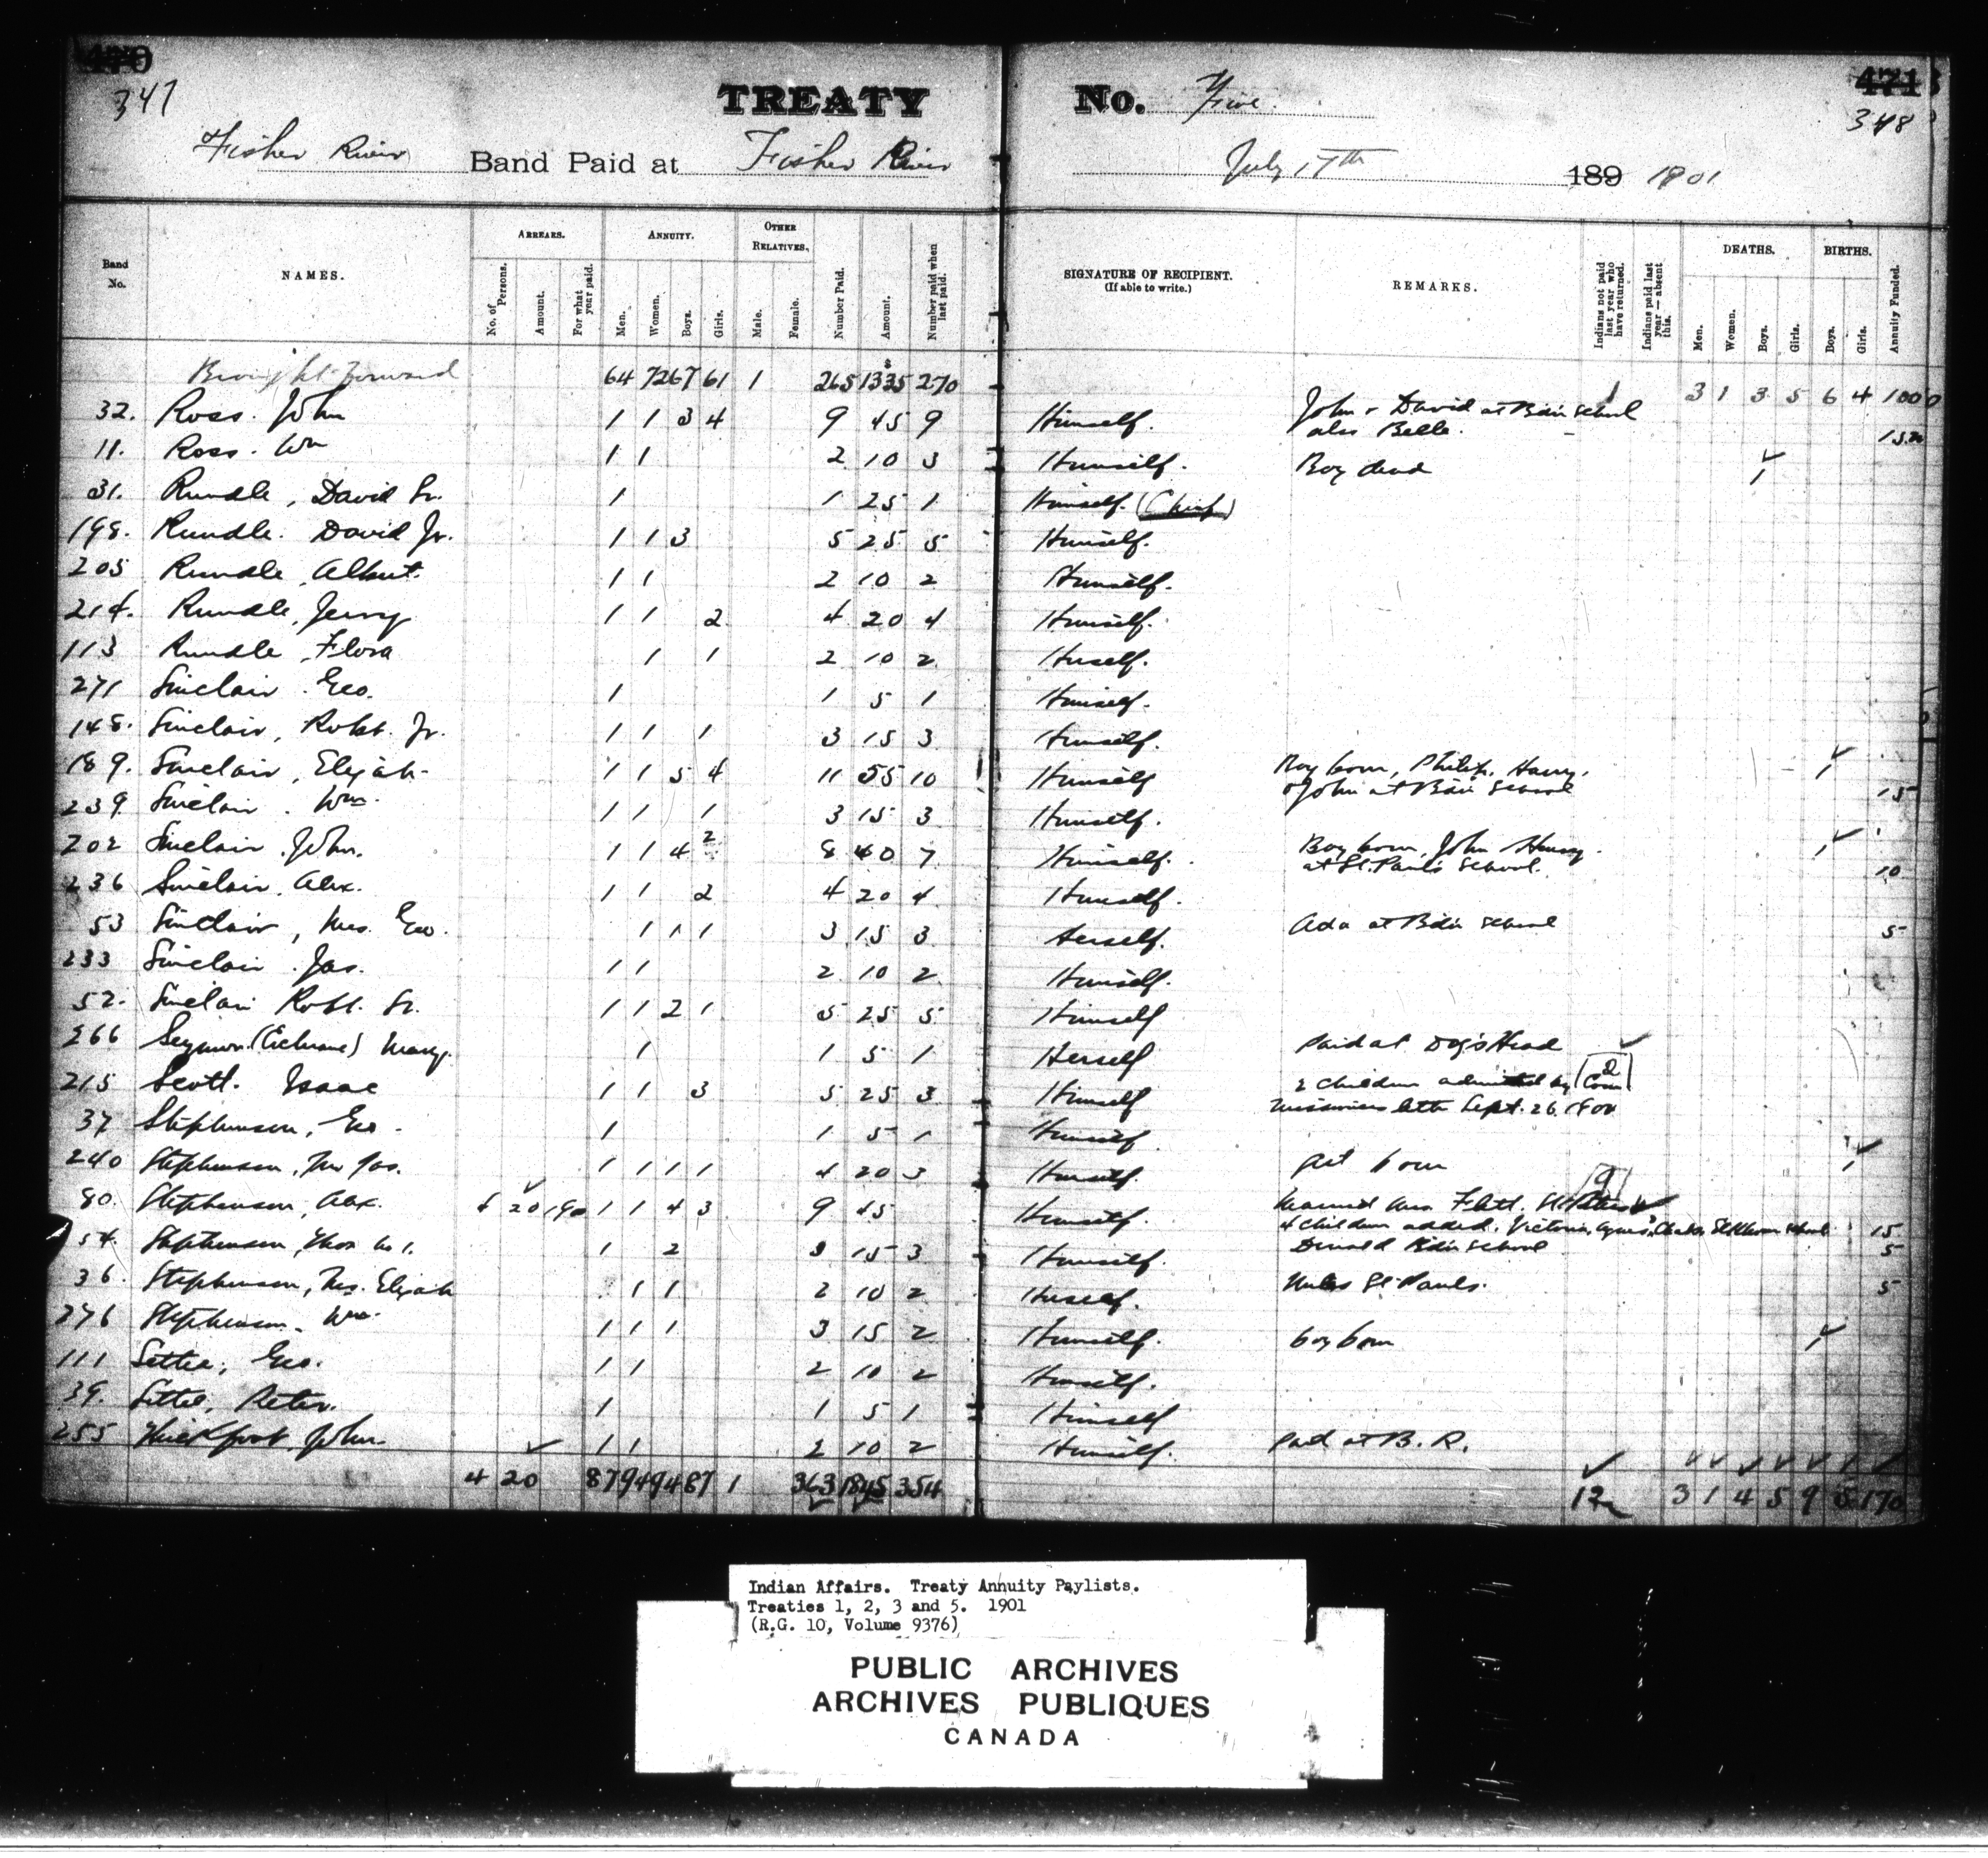 470
347
TREATY No. Five
471
348
Fisher River Band Paid at Fisher River
July 17th 189 1901
Band No.
NAMES.
ARREARS.
No. of Persons.
Amount.
For what year paid.
ANNUITY.
Men.
Women.
Boys.
Girls.
OTHER RELATIVES.
Male.
Female.
Number Paid.
Amount.
Number paid when last paid.
SIGNATURE OF RECIPIENT.
(If able to write.)
REMARKS.
Indians not paid last year who have returned.
Indians paid last year — absent this.
DEATHS.
Men.
Women.
Boys.
Girls.
BIRTHS.
Boys.
Girls.
Annuity Funded.
Brought Forward 64 72 67 61 1 265 1335 270 1 3 1 3 5 6 4 100
32. Ross. John 1 1 3 4 9 45 9 Himself. John & David at Bdin School
also Belle. 15
11. Ross. Wm 1 1 2 10 3 Himself. Boy dead 1
31. Rundle, David Sr. 1 1 25 1 Himself. (Chief)
198. Rundle. David Jr. 1 1 3 5 25 5 Himself.
205 Rundle, Albert. 1 1 2 10 2 Himself.
214. Rundle, Jerry 1 1 2 4 20 4 Himself.
113 Rundle, Flora 1 1 2 10 2 Herself.
271 Sinclair. Geo. 1 1 5 1 Himself.
148. Sinclair, Robt. Jr. 1 1 1 3 15 3 Himself.
189. Sinclair, Elijah 1 1 5 4 11 55 10 Himself Boy born, Philip, Harry,
& John at Bdin School 1 15
239 Sinclair. Wm. 1 1 1 3 15 3 Himself.
202 Sinclair. John. 1 1 4 2 8 40 7 Himself. Boy born, John Henry
at St. Paul's School. 1 10
236 Sinclair, Alex. 1 1 2 4 20 4 Himself.
53 Sinclair, Mrs. Geo. 1 1 1 3 15 3 Herself. Ada at Bdin School 5
233 Sinclair. Jas. 1 1 2 10 2 Himself.
52. Sinclair Robt. Sr. 1 1 2 1 5 25 5 Himself
266 Seymour (Cochrane) Mary. 1 1 5 1 Herself Paid at Dog's Head
215 Scott. Isaac 1 1 3 5 25 3 Himself 2 children admitted by Com 2
missioners letter Sept. 26.
37 Stephenson, Geo. 1 1 5 1 Himself
240 Stephenson, Jas. 1 1 1 1 4 20 3 Himself. girl born 1
80. Stephenson, Alex. 4 20 1 1 4 3 9 45 Himself. 9
4 children added. Victoria, Agnes, School 15
54. Stephenson, Thos No 1. 1 2 3 15 3 Himself. Donald Bdin School 5
36. Stephenson, Mrs. Elijah 1 1 2 10 2 Herself. St. Pauls. 5
276 Stephenson. Wm. 1 1 1 3 15 2 Himself. boy born 1
111 Settee, Geo. 1 1 2 10 2 Himself.
39. Settee, Peter. 1 1 5 1 Himself
255 Thickfoot, John. 1 1 2 10 2 Himself. Paid at B. R.
4 20 87 94 94 87 1 363 1845 354 12 3 1 4 5 9 5 170
Indian Affairs. Treaty Annuity Paylists.
Treaties 1, 2, 3 and 5. 1901
(R.G. 10, Volume 9376)
PUBLIC ARCHIVES
ARCHIVES PUBLIQUES
CANADA